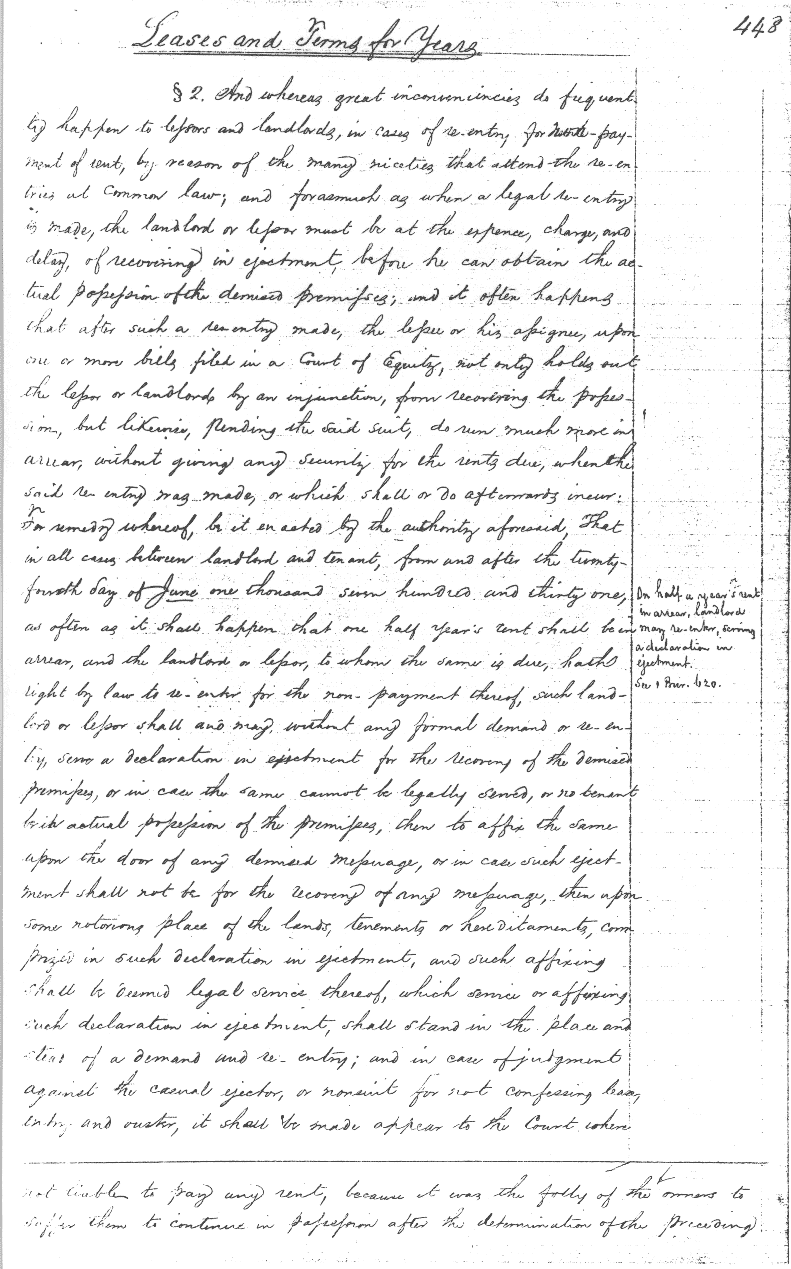 448
Leases and Terms for Years
§ 2. And whereas great inconveniencies do frequent-
ly happen to lessors and landlords, in cases of re-entry for non-pay-
ment of rent, by reason of the many niceties that attend the re-en-
tries at Common law; and forasmuch as when a legal re-entry
is made, the landlord or lessor must be at the expence, charge, and
delay, of recovering in ejectment, before he can obtain the ac-
tual possession of the demised premisses; and it often happens
that after such a re-entry made, the lessee or his assignee, upon
one or more bills filed in a Court of Equity, not only holds out
the lessor or landlords by an injunction, from recovering the posses-
sion, but likewise, pending the said suit, do run much more in
arrear, without giving any security for the rents due, when the
said re-entry was made, or which shall or do afterwards incur:
For remedy whereof, be it enacted by the authority aforesaid, That
in all cases between landlord and tenant, from and after the twenty-
fourth day of June one thousand seven hundred and thirty one,
as often as it shall happen that one half year's rent shall be in
arrear, and the landlord or lessor, to whom the same is due, hath
right by law to re-enter for the non-payment thereof, such land-
lord or lessor shall and may, without any formal demand or re-en-
try, serve a declaration in ejectment for the recovery of the demised
premisses, or in case the same cannot be legally served, or no tenant
be in actual possession of the premisses, then to affix the same
upon the door of any demised messuage, or in case such eject-
ment shall not be for the recovery of any messuage, then upon
some notorious place of the lands, tenements or hereditaments, com
prized in such declaration in ejectment, and such affixing
shall be deemed legal service thereof, which service or affixing
such declaration in ejectment, shall stand in the place and
stead of a demand and re-entry; and in case of judgment
against the casual ejector, or nonsuit for not confessing lease,
entry and ouster, it shall be made appear to the Court where
On half a year's rent
in arrear, landlord
may re-enter, serving
a declaration in
ejectment.
See 1 Burr. 620.
not liable to pay any rent, because it was the folly of the owners to
suffer them to continue in possession after the determination of the preceding